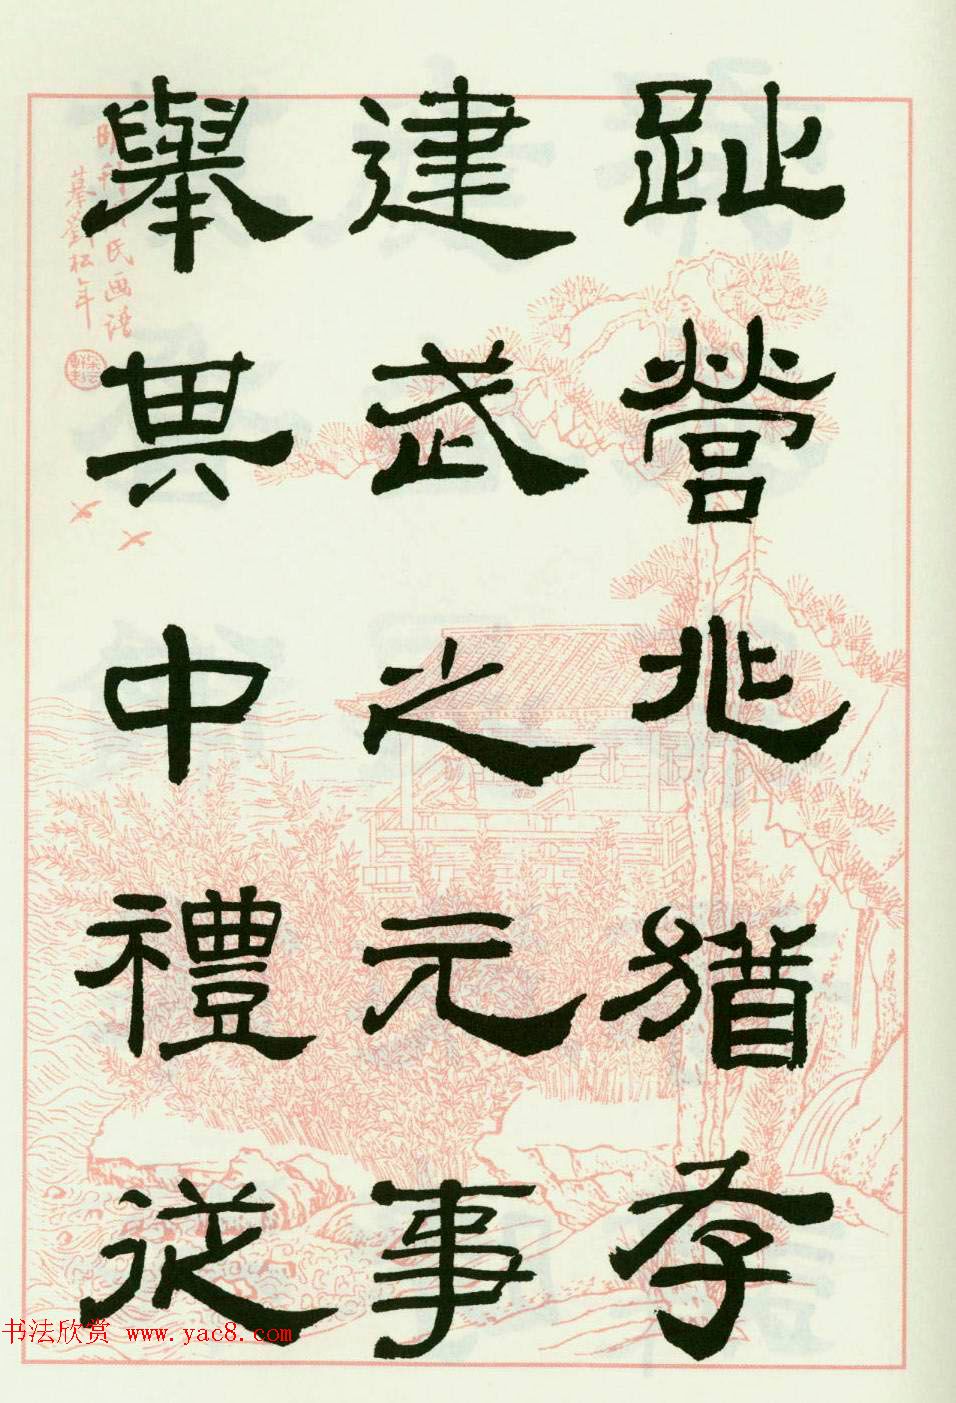 趾營兆猶存
建武之元事
舉其中禮從
明刊顧氏画譜
摹劉松年
书法欣赏 www.yac8.com